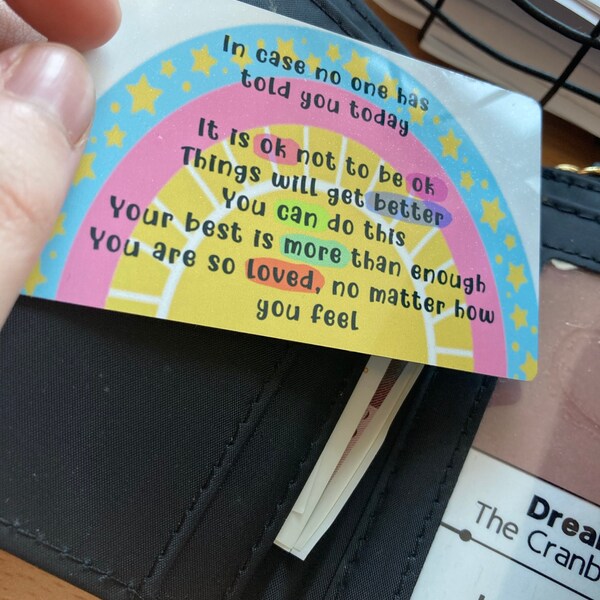 In case no one has
told you today
It is ok not to be ok
Things will get better
You can do this
Your best is more than enough
You are so loved, no matter how
you feel
The Cranb